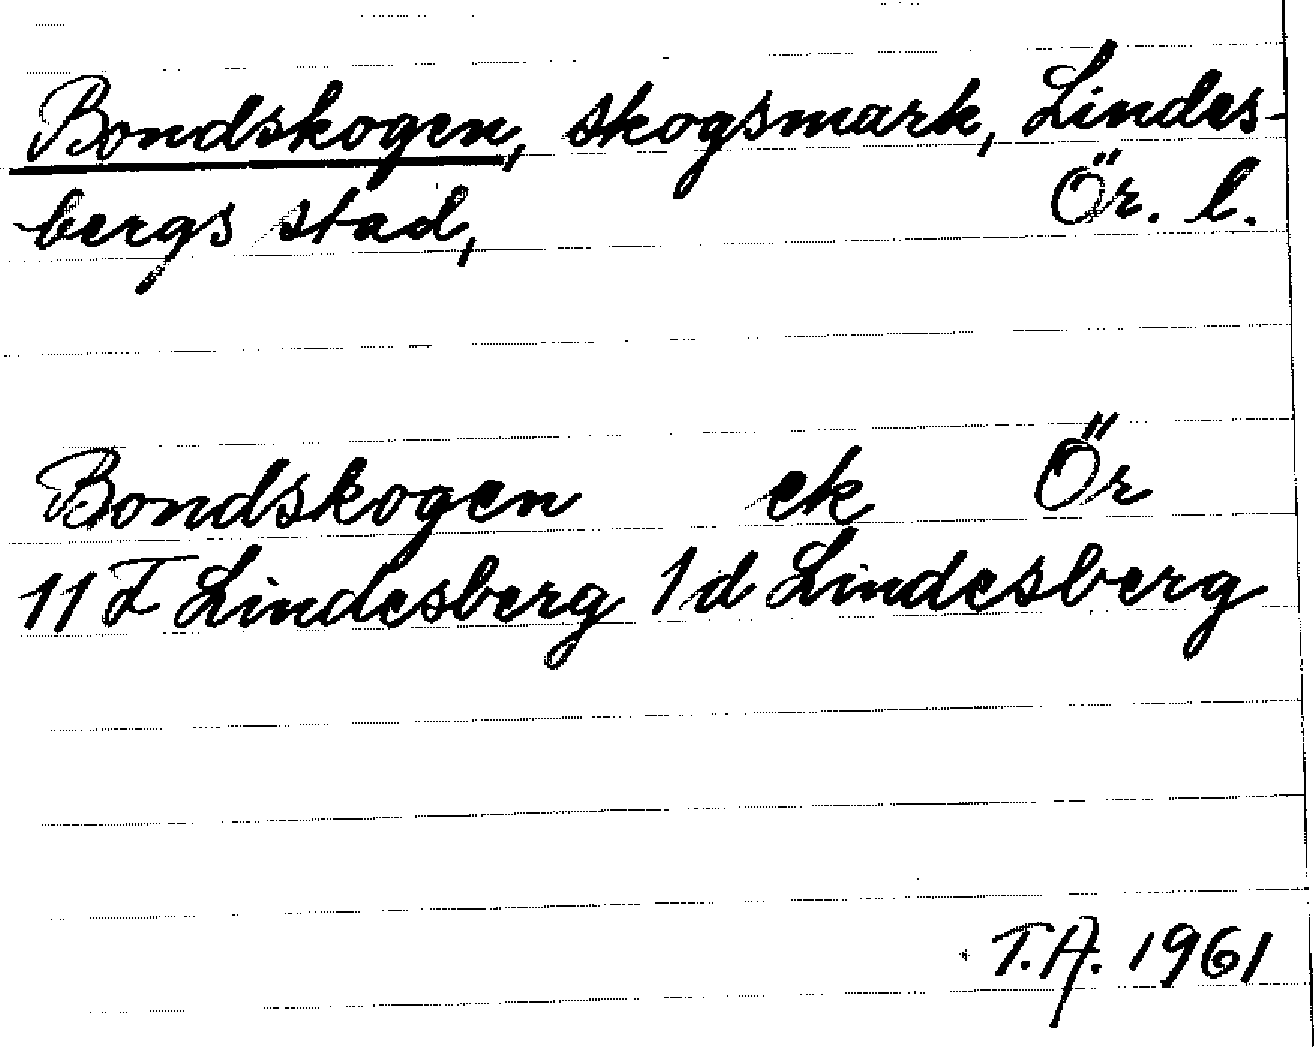 Bondskogen, skogsmark, Lindes-
bergs stad, Ör. l.
Bondskogen ek Ör
11 F Lindesberg 1d Lindesberg
T.A. 1961